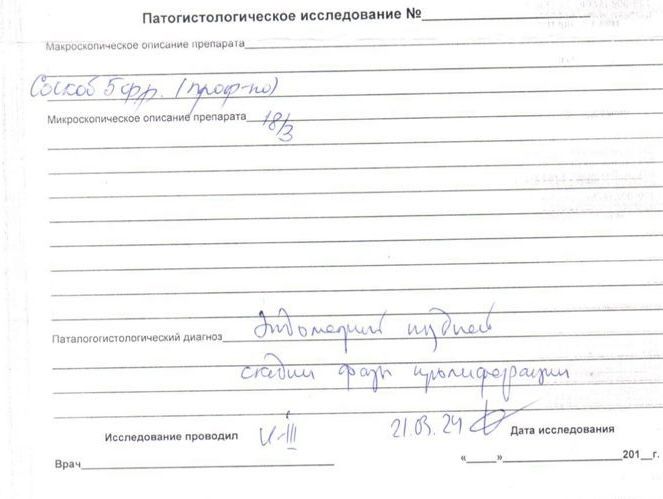 Патогистологическое исследование №
Макроскопическое описание препарата
Соскоб 5 фр. (проф-по)
Микроскопическое описание препарата 18/3
Паталогогистологический диагноз Эндометрий поздней
стадии фазы пролиферации
Исследование проводил 21.03.24 Дата исследования
Врач « » 201 г.